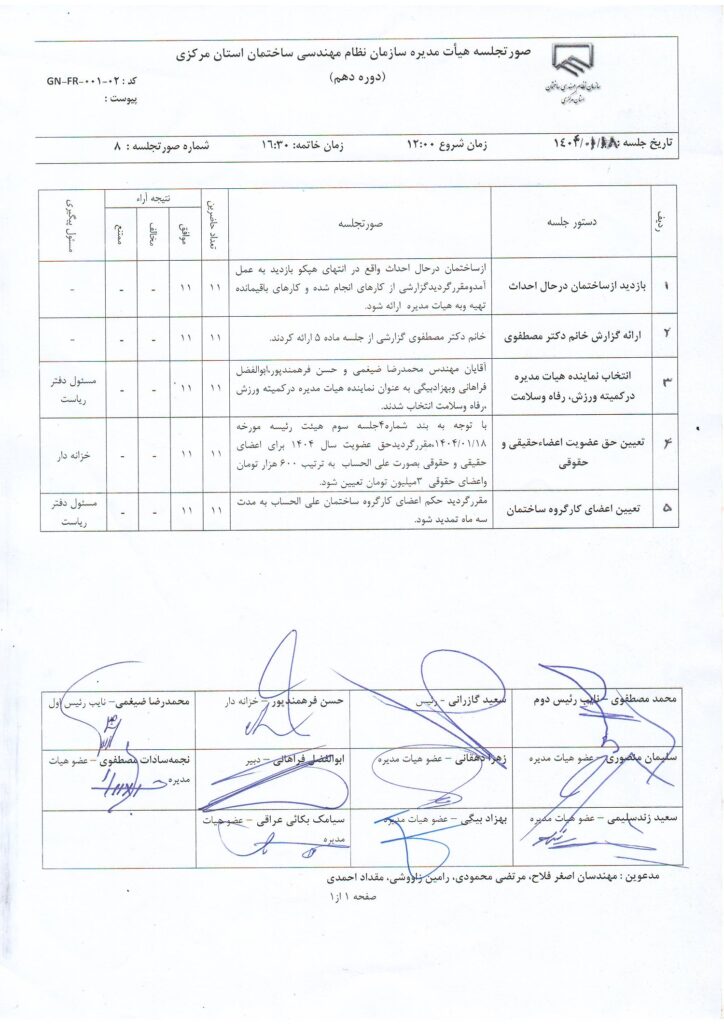 صورتجلسه هیأت مدیره سازمان نظام مهندسی ساختمان استان مرکزی
(دوره دهم)
سازمان نظام مهندسی ساختمان
استان مرکزی
کد : GN-FR-۰۰۱-۰۲
پیوست :
تاریخ جلسه : ۱۴۰۴/۰۱/۱۸ زمان شروع ۱۲:۰۰ زمان خاتمه: ۱۶:۳۰ شماره صورتجلسه : ۸
ردیف دستور جلسه صورتجلسه تعداد حاضرین نتیجه آراء مسئول پیگیری
موافق مخالف ممتنع
۱ بازدید ازساختمان درحال احداث
ازساختمان درحال احداث واقع در انتهای هپکو بازدید به عمل
آمدومقررگردیدگزارشی از کارهای انجام شده و کارهای باقیمانده
تهیه وبه هیات مدیره ارائه شود.
۱۱ ۱۱ - - -
۲ ارائه گزارش خانم دکتر مصطفوی
خانم دکتر مصطفوی گزارشی از جلسه ماده ۵ ارائه کردند.
۱۱ ۱۱ - - -
۳ انتخاب نماینده هیات مدیره
درکمیته ورزش، رفاه وسلامت
آقایان مهندس محمدرضا ضیغمی و حسن فرهمندپور،ابوالفضل
فراهانی وبهزادبیگی به عنوان نماینده هیات مدیره درکمیته ورزش
،رفاه وسلامت انتخاب شدند.
۱۱ ۱۱ - - مسئول دفتر
ریاست
۴ تعیین حق عضویت اعضاءحقیقی و
حقوقی
با توجه به بند شماره۴جلسه سوم هیئت رئیسه مورخه
۱۴۰۴/۰۱/۱۸،مقررگردیدحق عضویت سال ۱۴۰۴ برای اعضای
حقیقی و حقوقی بصورت علی الحساب به ترتیب ۶۰۰ هزار تومان
واعضای حقوقی ۳میلیون تومان تعیین شود.
۱۱ ۱۱ - - خزانه دار
۵ تعیین اعضای کارگروه ساختمان
مقررگردید حکم اعضای کارگروه ساختمان علی الحساب به مدت
سه ماه تمدید شود.
۱۱ ۱۱ - - مسئول دفتر
ریاست
محمد مصطفوی – نایب رئیس دوم سعید گازرانی - رئیس حسن فرهمندپور – خزانه دار محمدرضا ضیغمی – نایب رئیس اول
سلیمان منصوری – عضو هیات مدیره زهرا دهقانی – عضو هیات مدیره ابوالفضل فراهانی – دبیر نجمه‌سادات مصطفوی – عضو هیات
مدیره
سعید زندسلیمی – عضو هیات مدیره بهزاد بیگی – عضو هیات مدیره سیامک یکائی عراقی – عضو هیات
مدیره
مدعوین : مهندسان اصغر فلاح، مرتضی محمودی، رامین زاووشی، مقداد احمدی
صفحه ۱ از۱